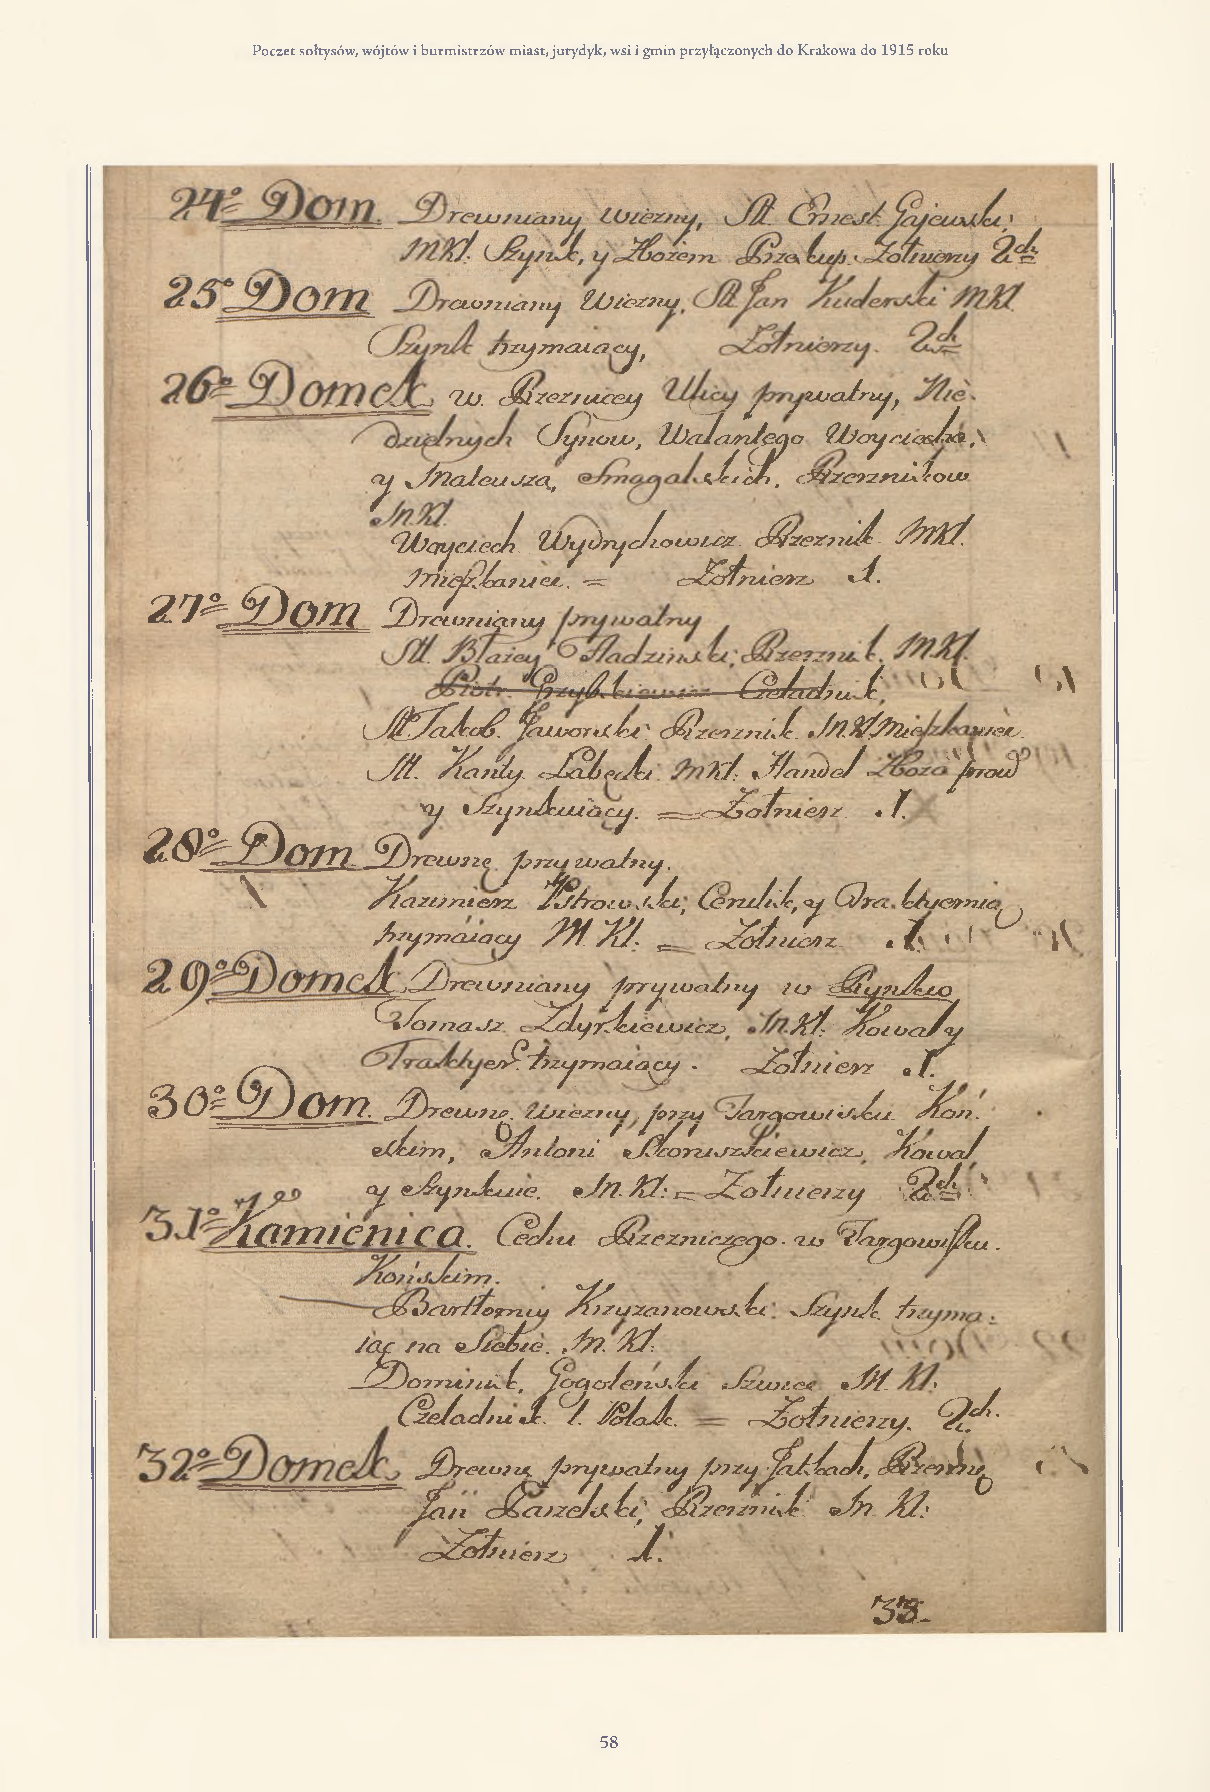 Poczet sołtysów, wójtów i burmistrzów miast, jurydyk, wsi i gmin przyłączonych do Krakowa do 1915 roku
24º Dom. Drewniany wiezny, St. Ernest Gajewski;
MKl. Szynk, y Zbożem Przekup. Żołnierzy 2ch
25º Dom Drewniany Wiezny, St Jan Kuderski MKl
Szynk trzymaiący, Żołnierzy. 2ch
26º Domek w. Rzezniczey Ulicy prywatny, Nie-
dzielnych Synow, Walantego Woyciecha,
y Mateusza, Smagalskich, Rzeznikow
M.Kl.
Woyciech Wydrychowicz Rzeznik MKl.
Mieszkaniec. = Żołnierz 1.
27º Dom Drewniany prywatny
St. Błażey Hadzinski; Rzeznik. M.Kl.
Piotr Grzybkiewicz Czeladnik,
St Jakob. Jaworski Rzeznik. M.Kl Mieszkaniec.
St. Kanty Łabęcki MKl: Handel Zboża prow
y Szynkuiący. = Żołnierz 1.
28º Dom Drewnę. prywatny.
Kazimierz Ostrowski, Cerulik, y Traktyernią
trzymaiący M. Kl: = Żołnierz 1.
29º Domek Drewniany prywatny w Rynku
Tomasz Zdyrkiewicz, M.Kl: Kowal y
Traktyer. trzymaiący. Żołnierz 1.
30º Dom. Drewnę. wiezny, przy Targowisku Koń.
skim, Antoni Skoruszkiewicz, Kowal
y Szynkuie. M.Kl: = Żołnierzy 2ch
31º Kamienica. Cechu Rzezniczego. w Targowisku.
Końskim.
Bartłomiy Krzyzanowski. Szynk trzyma:
iąc na Siebie. M. Kl:
Dominik, Gogoleński Szwiec M. Kl:
Czeladnik 1. Polak. = Żołnierzy. 2ch.
32º Domek Drewnę prywatny przy Jatkach,
Jan Rzeznik M. Kl:
Żołnierz 1.
33.
58